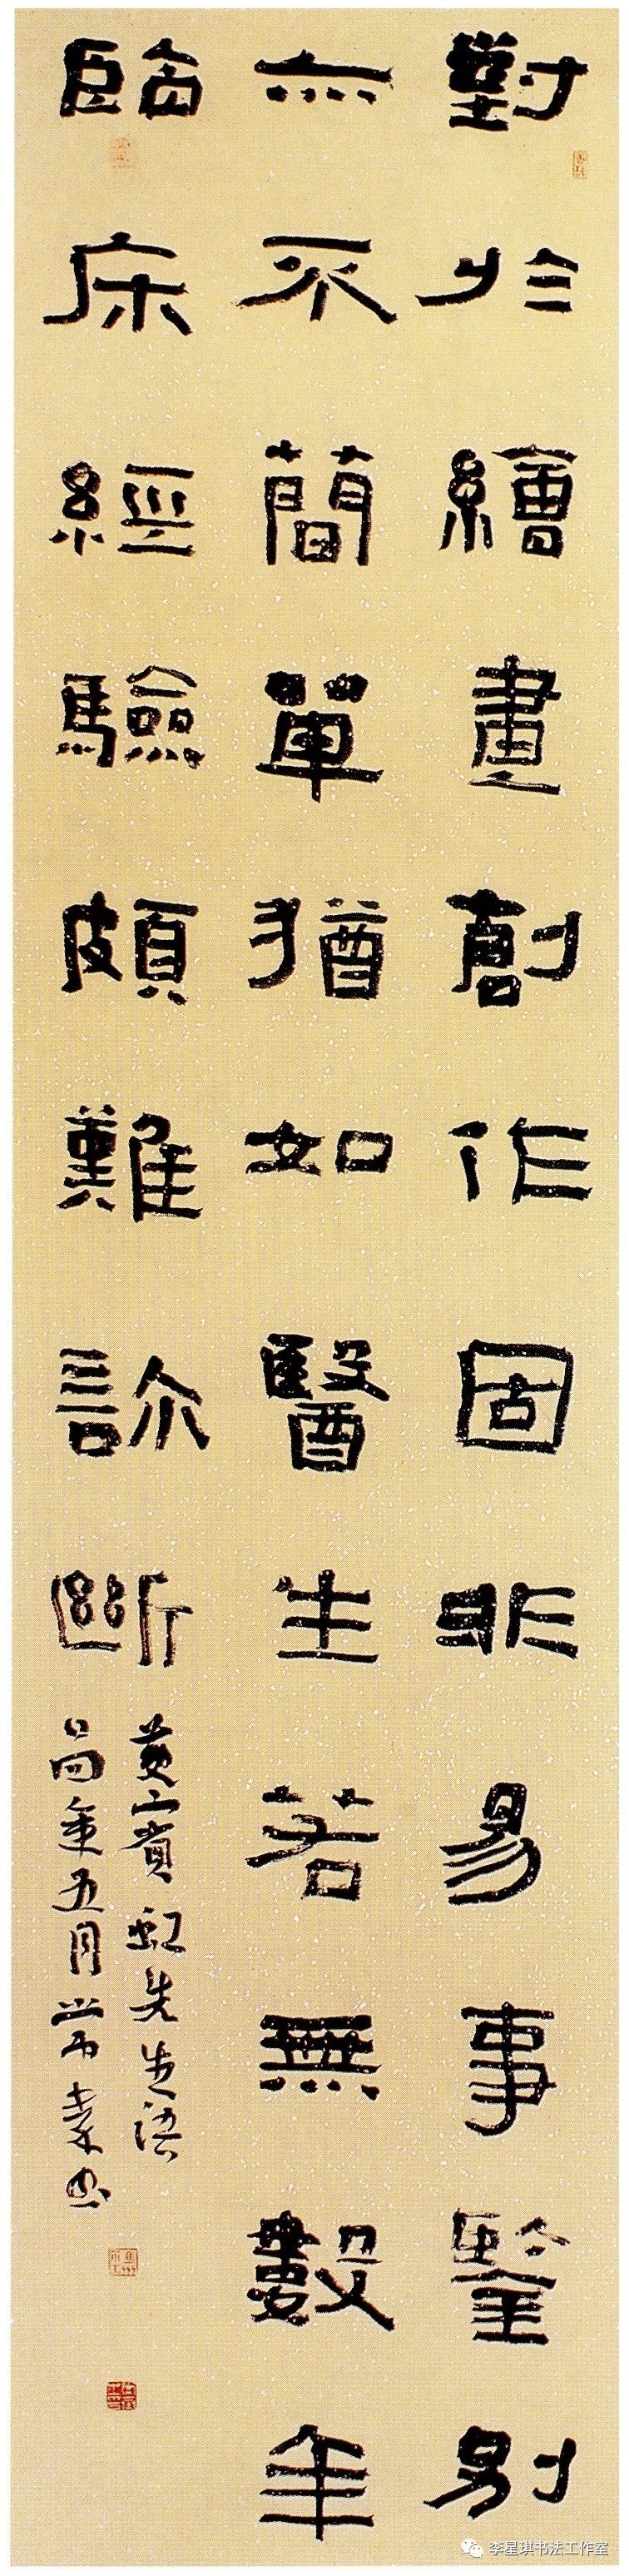 對於繪畫創作固非易事鑒別
亦不簡單猶如醫生若無數年
臨床經驗頗難診斷
黃賓虹先生語
年五月
李星琪书法工作室